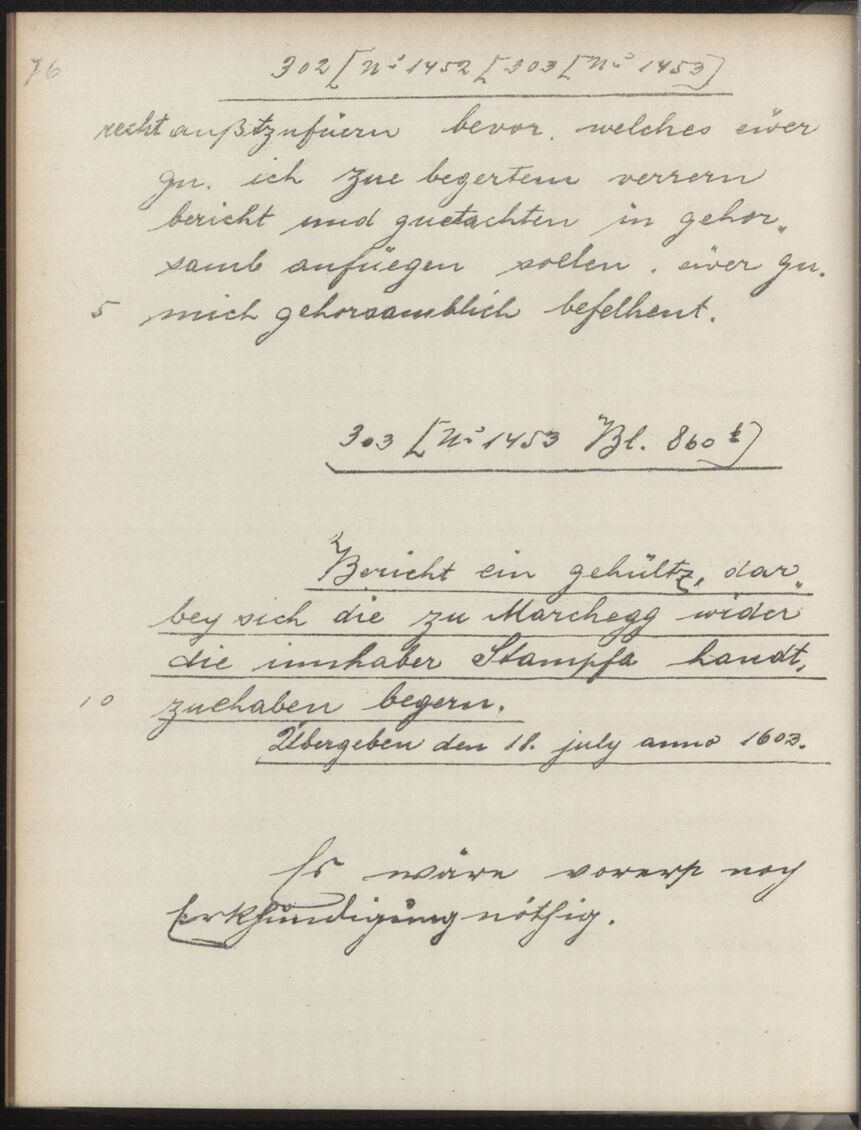 76
302 [No 1452 [303 [No 1453]
recht außtzufüern bevor. welches eüer
gn. ich zue begertem verrern
bericht und guetachten in gehor„
samb anfüegen sollen. eüer gn.
5 mich gehorsamblich befelhent.
303 [No 1453 Bl. 860 b]
Bericht ein gehültz, dar„
bey sich die zu Marchegg wider
die innhaber Stampfa handt,
10 zuehaben begern.
Übergeben den 18. july anno 1603.
Es wäre vorerst noch
Erkhundigung nöthig.